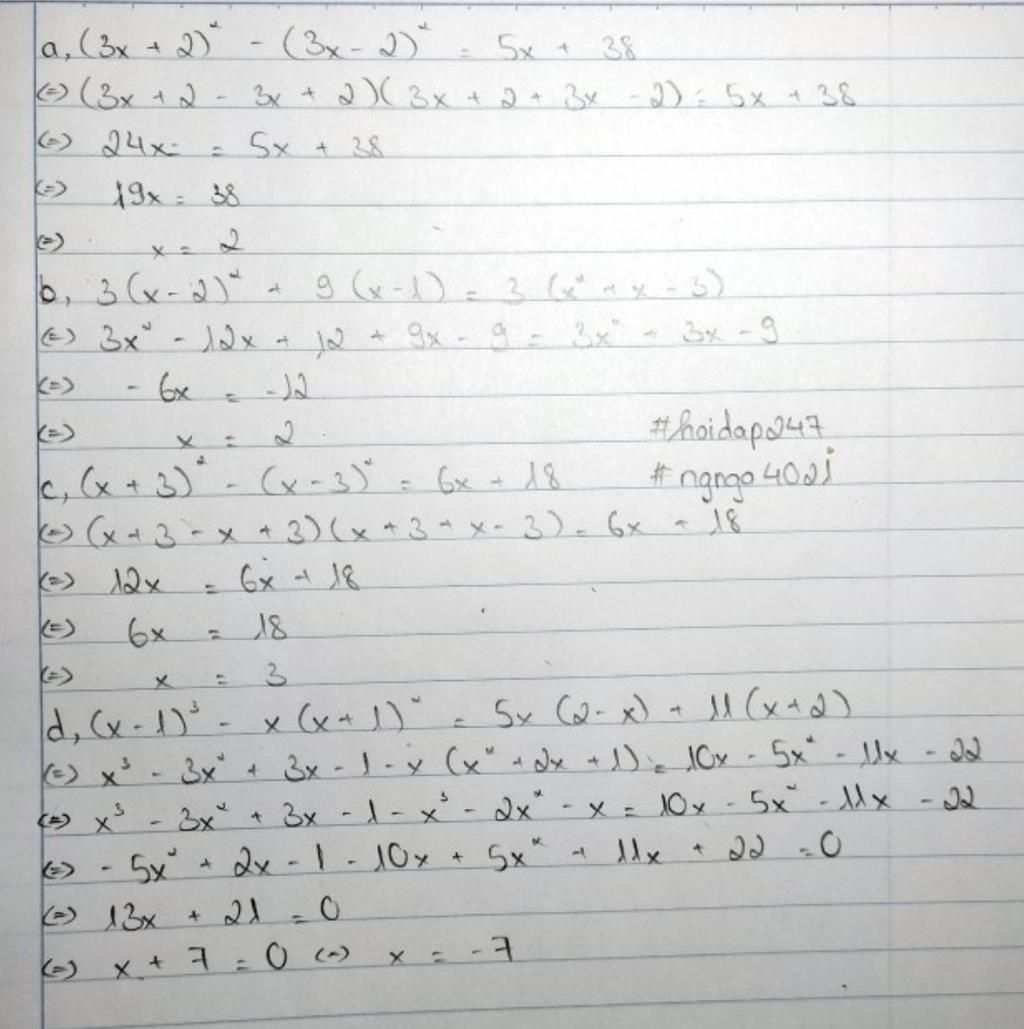 a, (3x + 2)² - (3x - 2)² = 5x + 38
(=) (3x + 2 - 3x + 2)(3x + 2 + 3x - 2) = 5x + 38
(=) 24x = 5x + 38
(=) 19x = 38
(=) x = 2
b, 3(x - 2)² + 9(x - 1) = 3(x² + x - 3)
(=) 3x² - 12x + 12 + 9x - 9 = 3x² + 3x - 9
(=) - 6x = -12
(=) x = 2
#hoidap247
c, (x + 3)² - (x - 3)² = 6x + 18
#ngngo4021
(=) (x + 3 - x + 3)(x + 3 + x - 3) = 6x + 18
(=) 12x = 6x + 18
(=) 6x = 18
(=) x = 3
d, (x - 1)³ - x(x + 1)² = 5x(2 - x) + 11(x + 2)
(=) x³ - 3x² + 3x - 1 - x(x² + 2x + 1) = 10x - 5x² - 11x - 22
(=) x³ - 3x² + 3x - 1 - x³ - 2x² - x = 10x - 5x² - 11x - 22
(=) - 5x² + 2x - 1 - 10x + 5x² + 11x + 22 = 0
(=) 13x + 21 = 0
(=) x + 7 = 0 (=) x = -7